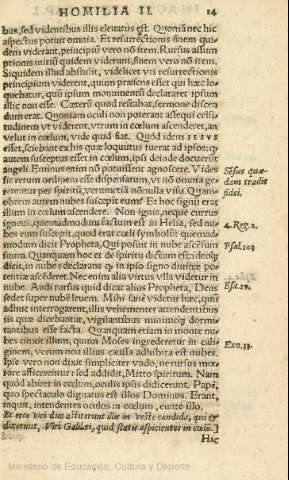 HOMILIA II. 14
bus, sed videntibus illis eleuatus est. Quoniā nec hic
aspectus potuit omnia. Et resurrectionis finem quidem
viderant, principiū vero nō item. Rursus assumptionis
initiū quidem viderunt, finem vero nō item.
Siquidem illud abstulit, videlicet vti resurrectionis
principium viderent, quum præsens esset qui hæc loquebatur,
quū ipsum monumentū declararet ipsum
illic non esse. Cæterū quod restabat, sermone discendum
erat. Quoniam oculi non poterant assequi celsitudinem
vt viderent, vtrum in cœlum ascenderet, an
velut in cœlum, vide quid fiat. Quòd idem IESVS
esset, sciebant ex his quæ loquutus fuerat ad ipsos: quòd
autem susceptus esset in cœlum, ipsi deinde docuerūt
angeli. Eminus enim nō potuissent agnoscere. Vides
sic rerum ordinem esse dispensatum, vt nō omnia gererentur
per spiritū, verum etiā nōnulla visu. Quamobrem
autem nubes suscepit eum? Et hoc signū erat
illum in cœlum ascendere. Non ignis, neque currus
igneus, quemadmodum factum est in Helia, sed nubes
eum suscepit, quod erat cœli symbolū quemadmodum
dicit Propheta, Qui posuit in nube ascēsum
suum. Quanquam hoc et de spiritu dictum est: de deo
dicit, in nube declarans quod in ipso signo diuinæ potentiæ
ascēderet. Nec enim alia virtus vlla videtur in
nube. Audi rursus quid dicat alius Propheta, Deus
sedet super nubē leuem. Mihi sanè videtur hæc, quū
adhuc interrogarent, illis vehementer attendentibus
iis quæ dicebantur, vigilantibus minimeque dormitantibus
esse facta. Quanquam etiam in monte nubes
cinxit illum, quum Moses ingrederetur in caliginem,
verum non illius caussa adhibita est nubes.
Ipse vero non dixit simpliciter vado, ne rursus mœrore
afficerentur: sed addidit, Mitto spiritum. Nam
quòd abiret in cœlum, oculis ipsis didicerunt. Papè,
quo spectaculo dignatus est illos Dominus. Erant,
inquit, intendentes oculos in cœlum, eunte illo.
Et ecce viri duo astiterunt illis in veste candida, qui &
dixerunt, Viri Galilæi, quid statis aspicientes in cœlū?]
Hic
Sēsus quædam
tradit
fidei.
4. Reg. 2.
Psal. 103
Esa. 19.
Exo. 33.
Ministerio de Educación, Cultura y Deporte